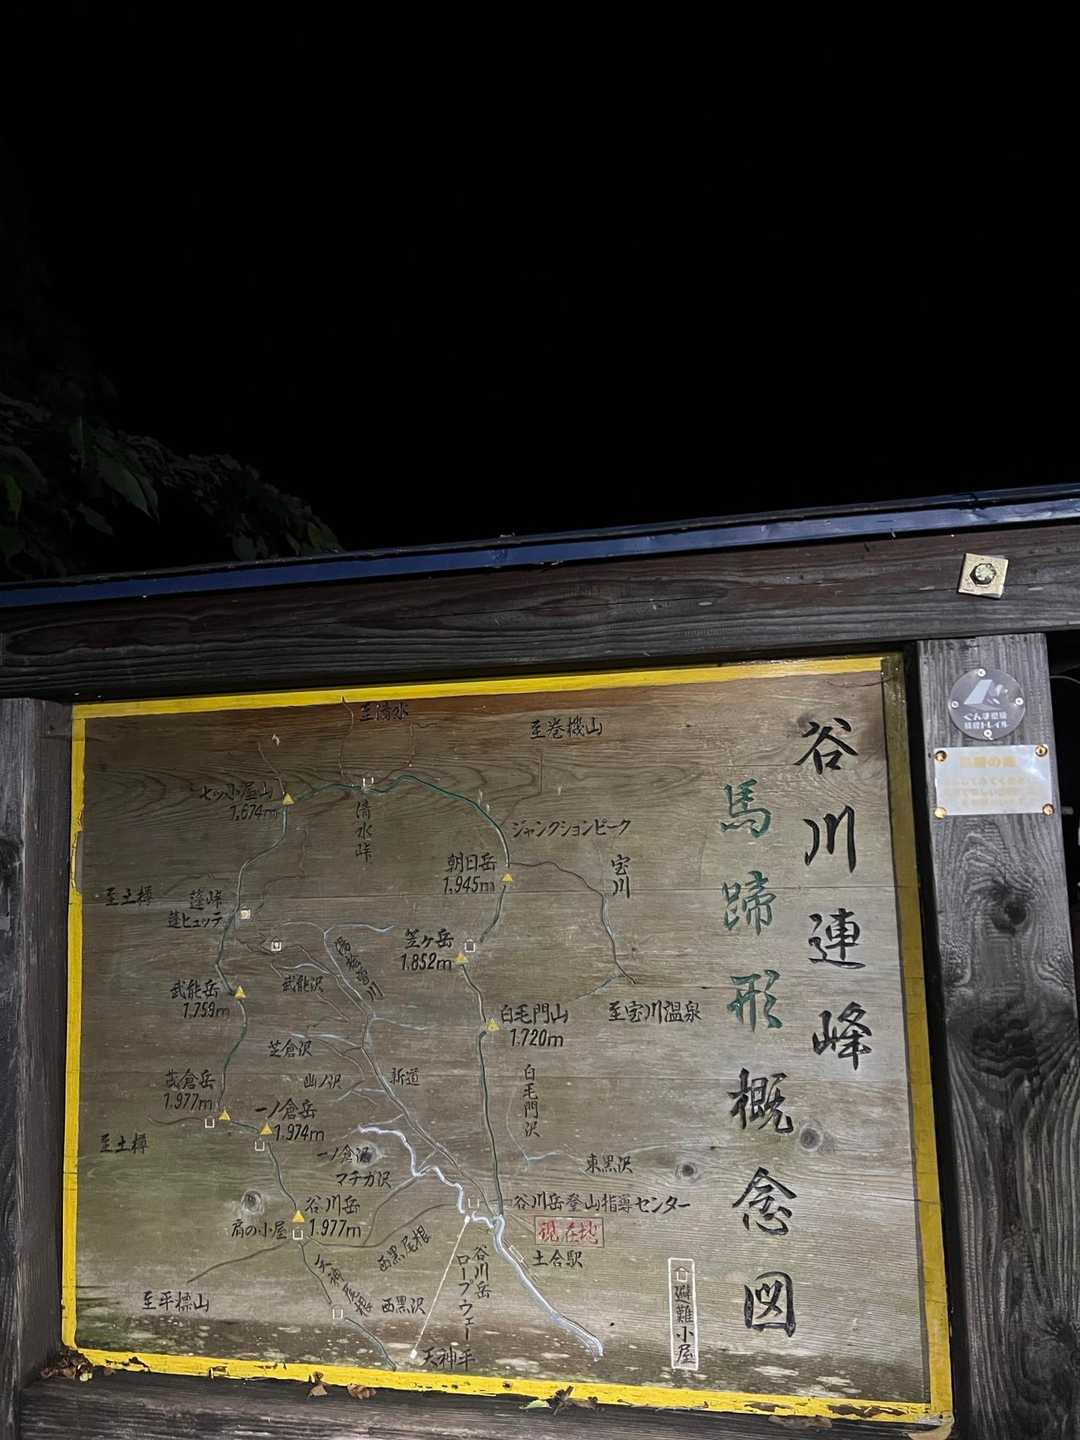 谷川連峰
馬蹄形概念図
至清水
至巻機山
七ッ小屋山
1,674m
清水峠
ジャンクションピーク
朝日岳
1,945m
宝川
至土樽
蓬峠
蓬ヒュッテ
笠ヶ岳
1.852m
武能沢
武能岳
1,759m
白毛門山
1.720m
至宝川温泉
芝倉沢
山ノ沢
新道
白毛門沢
茂倉岳
1.977m
一ノ倉岳
1.974m
至土樽
一ノ倉沢
マチガ沢
東黒沢
谷川岳
1.977m
肩の小屋
谷川岳登山指導センター
現在地
土合駅
西黒尾根
谷川岳
ロープウェー
天神尾根
西黒沢
至平標山
天神平
避難小屋
ぐんま県境
稜線トレイル